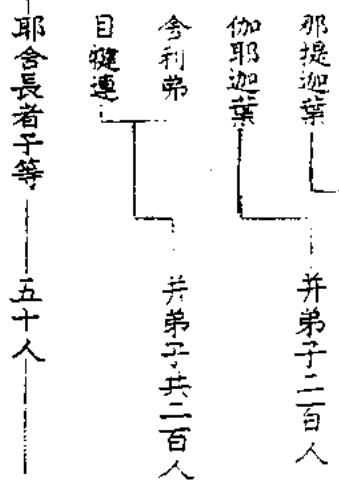 那提迦葉
伽耶迦葉
并弟子二百人
舍利弗
目犍連
并弟子共二百人
耶舍長者子等
五十人